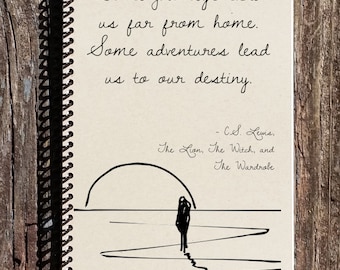 us far from home.
Some adventures lead
us to our destiny.
- C.S. Lewis,
The Lion, The Witch, and
The Wardrobe